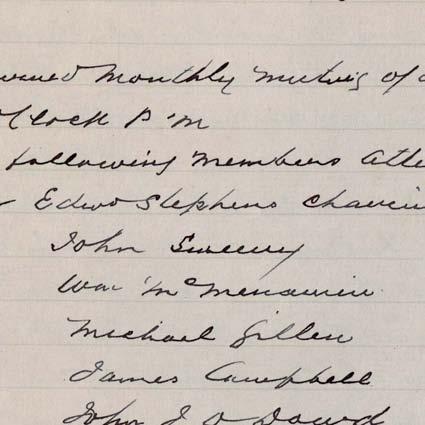 Monthly Meeting of
Clock P.M
following Members Atte
Edwd Stephens Chairm
John Sweeny
Wm McMenamin
Michael Gillen
James Campbell
John J O Dowd